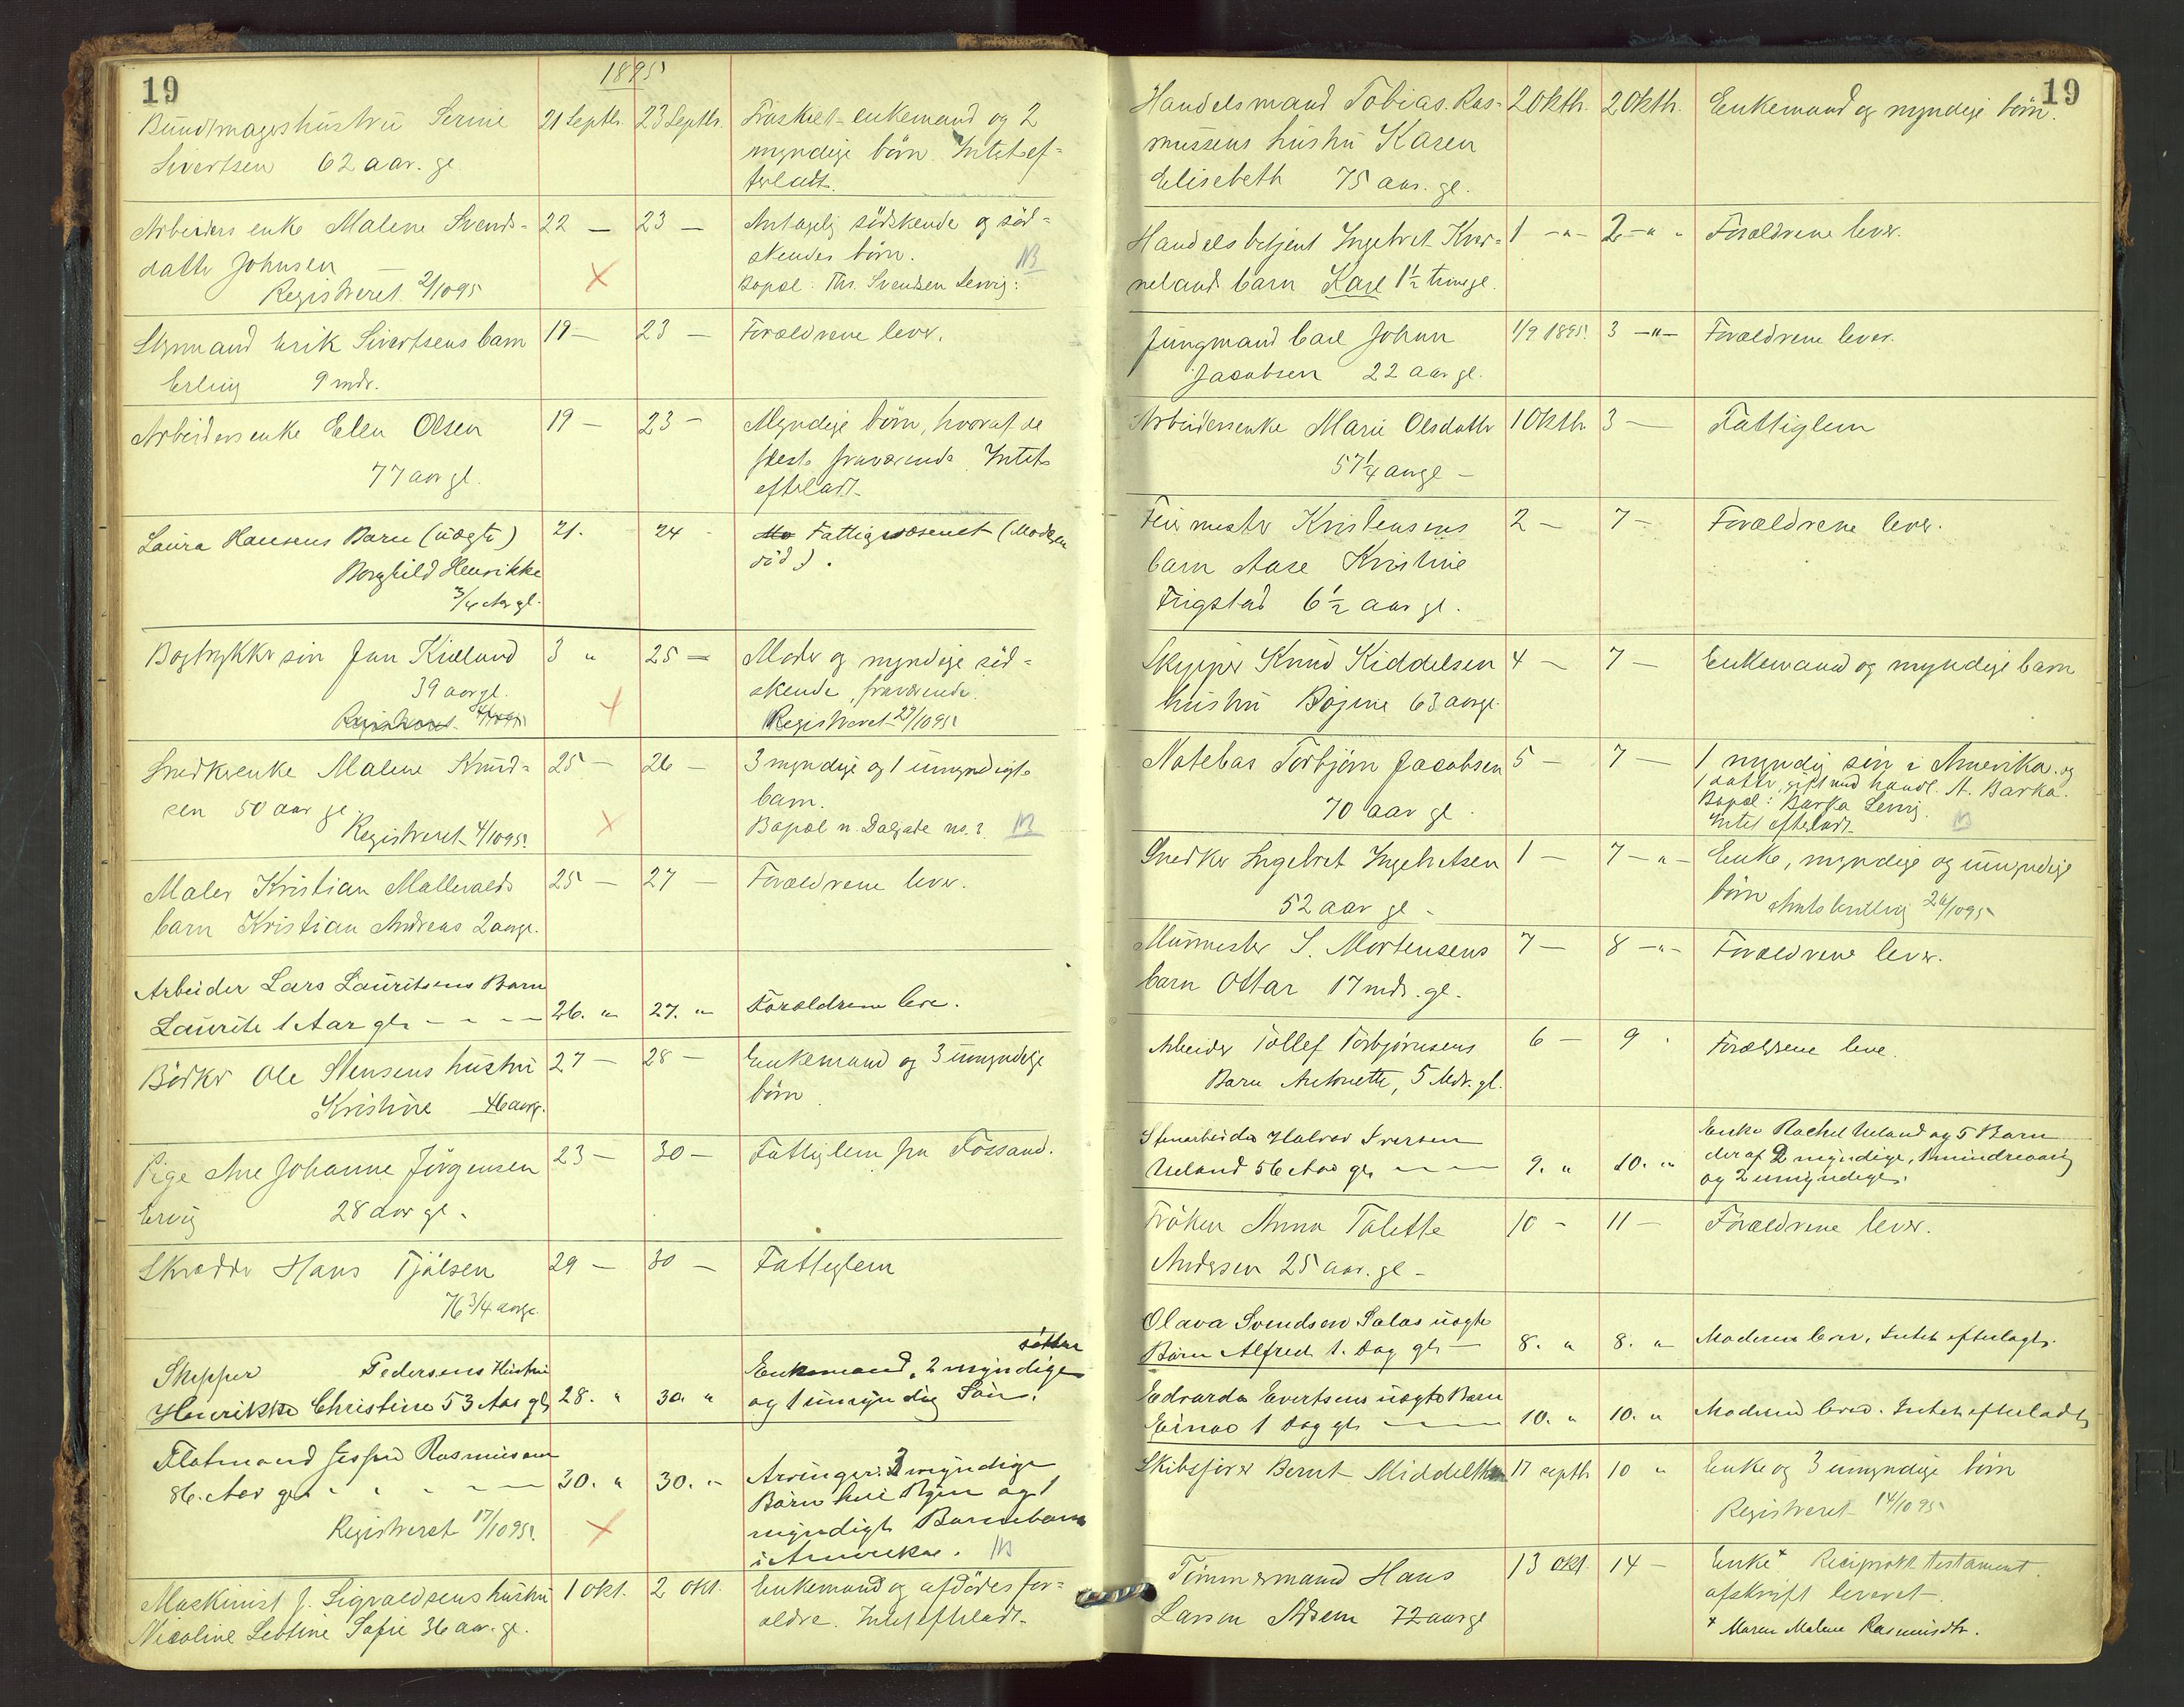 19
1895
Bundtmagerhustru Serine 21 Septbr. 23 Septbr. Fraskilt enkemand og 2
Sivertsen 62 aar. gl. myndige børn. Intet ef-
terladt.
Arbeiders enke Malene Svends- 22 — 23 — Antagelig södskende og söd-
datter Johnsen skendes børn. NB
Registreret 2/10 95 Bopæl: Ths. Svendsen Lervig.
Styrmand Erik Sivertsens barn 19 — 23 — Forældrene lever.
Erling 9 mdr.
Arbeiders enke Elen Olsen 19 — 23 — Myndige børn, hvoraf de
77 aar gl. fleste fraværende. Intet
efterladt.
Laura Hansens Barn (uægte) 21. 24 Fattigvæsenet (Moderen
Borghild Henrikke död).
3/4 Aar gl.
Bogtrykker sön Jan Kielland 3 " 25 — Moder og myndige söd-
39 aar gl. skende, fraværende.
Registreret Registreret 29/10 95
Snedkerenke Malene Knud- 25 — 26 — 3 myndige og 1 umyndigt
sen 50 aar gl. barn.
Registreret 4/10 95. Bopæl n. Dalgate no. 3 NB
Maler Kristian Mallevalds 25 — 27 — Forældrene lever.
barn Kristian Andreas 2 aargl.
Arbeider Lars Lauritsens Barn
Laurits 1 Aar gl. 26. " 27. " Forældrene leve.
Bödker Ole Stensens hustru 27 — 28 — Enkemand og 3 umyndige
Kristine 46 aargl. børn
Pige Ane Johanne Jörgensen 23 — 30 — Fattiglem fra Fossand.
Ervig 28 aar gl.
Skrædder Hans Tjölsen 29 — 30 — Fattiglem
76 3/4 aargl.
Skipper Pedersens Hustru Enkemand, 2 myndige döttre
Henrikke Christine 53 Aar gl. 28. " 30. " og 1 umyndig Sön.
Flotmand Jesper Rasmussen
86. Aar gl. 30. " 30. " Arvinger: 3 myndige
Börn her i Byen og 1
Registreret 17/10 95. myndigt Barnebarn
i Amerika. NB
Maskinist J. Sigvaldsens hustru 1 okt. 2 okt. Enkemand og afdödes for-
Nicoline Leotine Sofie 36 aar. gl. ældre. Intet efterladt.
19
Handelsmand Tobias Ras- 2 Oktb. 2 Oktb. Enkemand og myndige børn.
mussens hustru Karen
Elisebeth 75 aar. gl.
Handelsbetjent Ingebret Kver- 1 — " — 2 — " Forældrene lever.
neland barn Karl 1½ time gl.
Jungmand Carl Johan 1/9 1895. 3 — " — Forældrene lever.
Jacobsen 22 aar gl.
Arbeidersenke Marie Olsdatter 1 Oktbr 3 — Fattiglem
57 1/4 aargl —
Feiermester Kristensens 2 — 7 — Forældrene lever.
barn Aase Kristine
Frigstad 6½ aar gl.
Skipper Knud Kiddelsen 4 — 7 — Enkemand og myndige barn
hustru Bojine 63 aargl.
Notebas Torbjörn Jacobsen 5 — 7 — 1 myndig sön i Amerika og
70 aar gl. 1 datter, gift med handl. A. Barka.
Bopæl: Barka Lervig.
Intet efterladt. NB
Snedker Ingebret Ingebretsen 1 — 7 — " — Enke, myndige og umyndige
52 aar gl. børn 26/10 95
Murmester S. Mortensens 7 — 8 — " — Forældrene lever.
barn Ottar 17 mdr. gl.
Arbeider Tollef Torbjörnsens 6 — 9 . Forældrene leve.
Barn Antonette, 5 Mdr. gl.
Stenarbeider Halvor Iversen Enke Rachel Ueland og 5 Barn
Ueland 56 Aar gl. 9. " 10. " deraf 2 myndige, 1 mindreaarig
og 2 umyndige.
Fröken Anna Talette 10 — 11 — Forældrene lever.
Andersen 25 aar. gl —
Olava Svendsen Salas uægte
Barn Alfred 1. Dag gl. 8. " 8. " Moderen lever, Intet efterlagt.
Edvarda Evertsens uægte Barn
Einar 1 Dag gl. 10. " 10. " Moderen lever. Intet efterladt
Skibsfører Bernt Middelthon 17 septb 10 " Enke og 3 umyndige børn
Registreret 14/10 95
Tömmermand Hans 13 okt. 14 — Enke* Reciprokt testament.
Larsen Adsem 72 aargl afskrift leveret.
* Maren Malene Rasmusdtr.